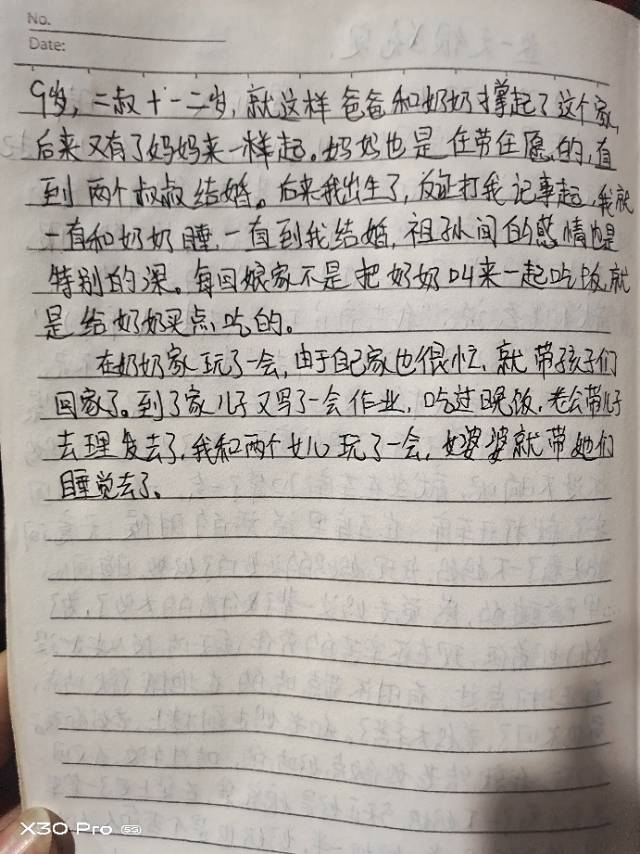 No.
Date:
9岁，二叔十一二岁，就这样爸爸和奶奶撑起了这个家，
后来又有了妈妈来一样起。妈妈也是任劳任愿的，直
到两个叔叔结婚。后来我出生了，反正打我记事起，我就
一直和奶奶睡，一直到我结婚，祖孙间的感情也是
特别的深。每回娘家不是把奶奶叫来一起吃饭，就
是给奶奶买点吃的。
在奶奶家玩了一会，由于自己家也很忙，就带孩子们
回家了。到了家儿子又写了一会作业，吃过晚饭，老公带儿子
去理发去了，我和两个女儿玩了一会，她婆婆就带她们
睡觉去了。
X30 Pro 5G